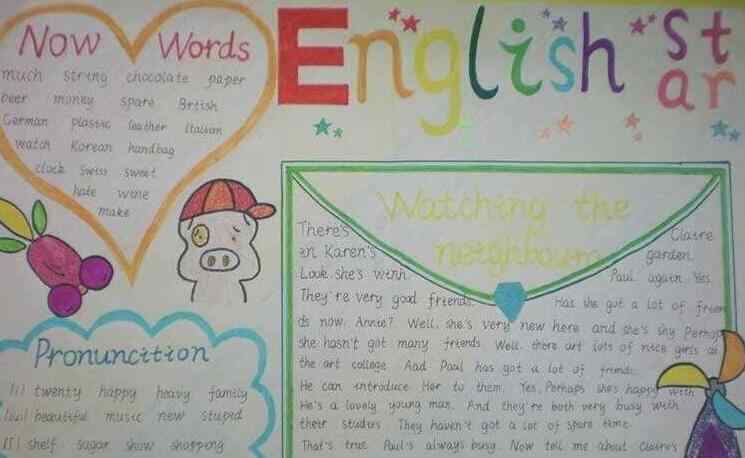 English star
Now Words
much string chocolate paper
beer money spare British
German plastic leather Italian
watch Korean handbag
clock swiss sweet
hate wine
make
Watching the
neighbours
There's Claire
in Karen's garden.
Look. she's with Paul again. Yes.
They're very good friends. Has she got a lot of frien
ds now, Annie? Well, she's very new here and she's shy Perhap
she hasn't got many friends. Well, there art lots of nice girls at
the art college. And Paul has got a lot of friends.
He can introduce Her to them. Yes, Perhaps she's happy with
He's a lovely young man. And they're both very busy with
their studies They haven't got a lot of spare time.
That's true. Paul's always busy. Now tell me about Claire's
Pronuncition
[i] twenty happy heavy family
beautiful music new stupid
[ʃ] shelf sugar show shopping